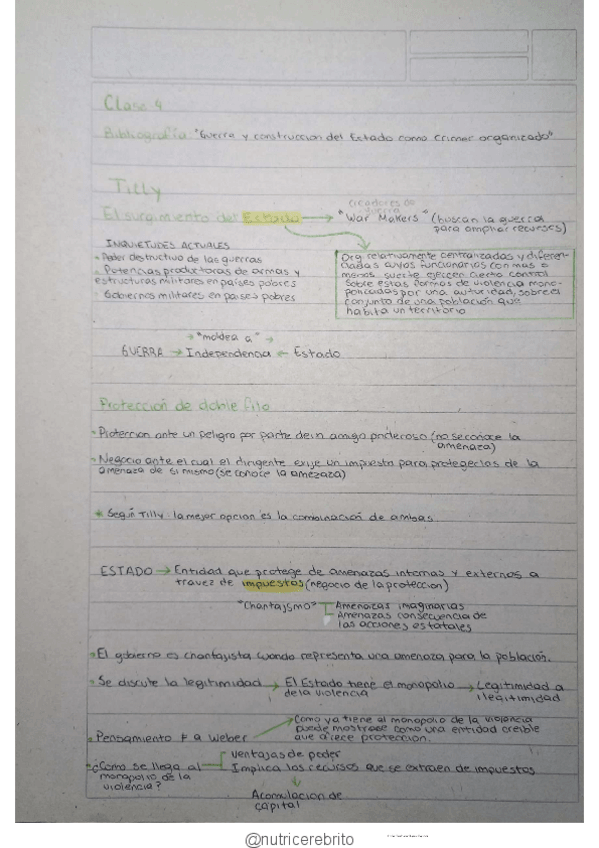 Clase 4
Bibliografía "Guerra y construccion del Estado como crimen organizado"
Tilly
creadores de guerra
El surgimiento del Estado → "War Makers" (buscan la guerra
para ampliar recursos)
INQUIETUDES ACTUALES
• Poder destructivo de las guerras
• Potencias productoras de armas y
estructuras militares en paises pobres
• Gobiernos militares en paises pobres
Org relativamente centralizadas y diferen-
ciadas cuyos funcionarios con mas o
menos suerte ejercen cierto control
sobre estas formas de violencia mono-
polizadas por una autoridad, sobre el
conjunto de una población que
habita un territorio
→ "moldea a" →
GUERRA → Independencia ← Estado
Protección de doble filo
• Protección ante un peligro por parte de un amigo poderoso (no se conoce la
amenaza)
• Negocio ante el cual el dirigente exije un impuesto para protegerlos de la
amenaza de si mismo (se conoce la amezaza)
* Según Tilly la mejor opcion es la combinación de ambas.
ESTADO → Entidad que protege de amenazas internas y externos a
travez de impuestos (negocio de la proteccion)
"Chantajsmo" Amenazas imaginarias
Amenazas consecuencia de
las acciones estatales
• El gobierno es chantajista cuando representa una amenaza para la población.
• Se discute la legitimidad → El Estado tiene el monopolio → Legitimidad a
de la violencia ilegitimidad
Como ya tiene el monopolio de la violencia
puede mostrarse como una entidad creible
que ofrece protección.
• Pensamiento F a Weber
• ¿Como se llega al
monopolio de la
violencia?
Ventajas de poder
Implica los recursos que se extraen de impuestos
Acomulacion de
capital
@nutricerebrito